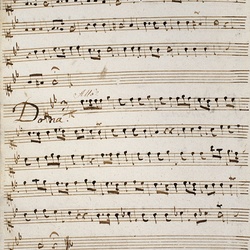 Allo
Dona